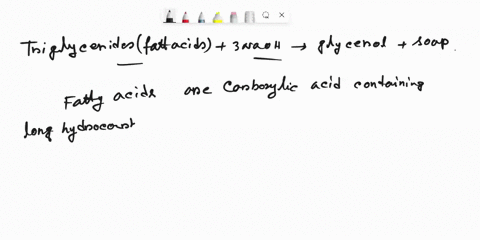 Triglycerides (fatt acids) + 3 NaOH → glycerol + soap.
Fatty acids are Carboxylic acid containing
long hydrocarb